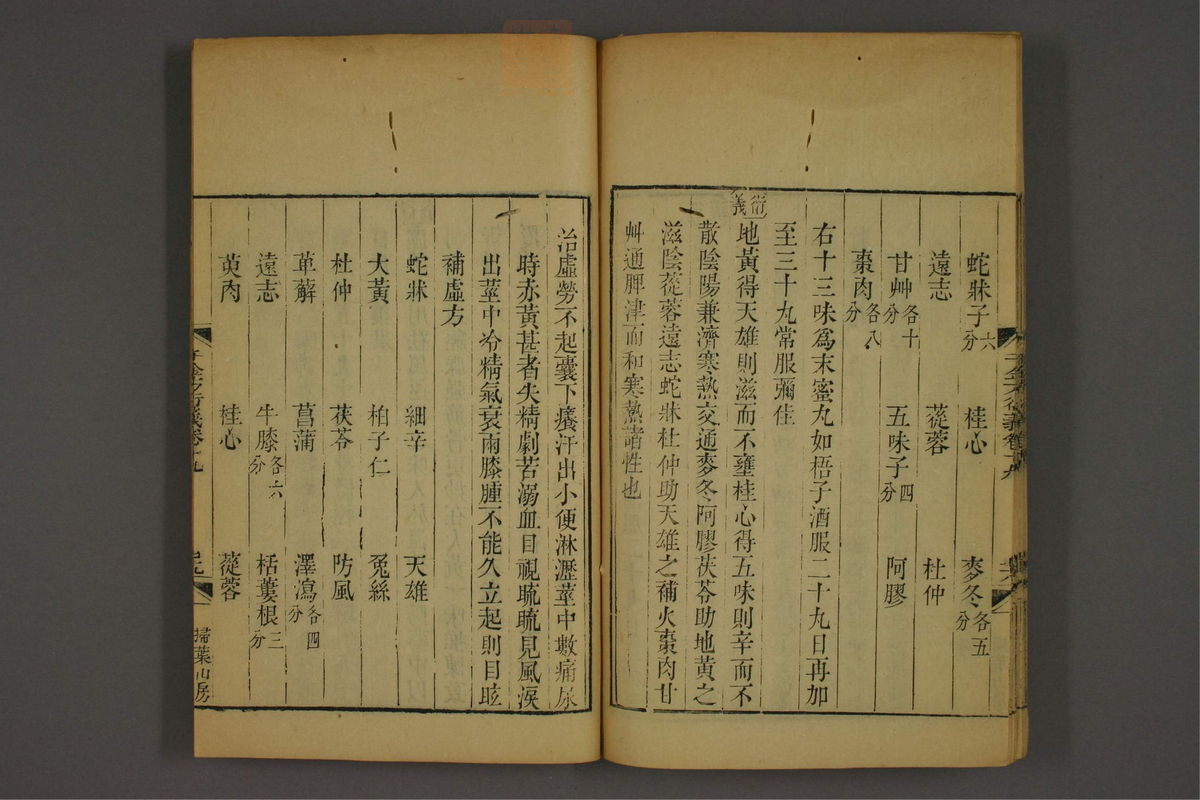 蛇牀子六分 桂心 麥冬各五分
遠志 蓯蓉 杜仲
甘艸各十分 五味子四分 阿膠
棗肉各八分
右十三味爲末蜜丸如梧子酒服二十九日再加
至三十丸常服彌佳
衍義
地黃得天雄則滋而不壅桂心得五味則辛而不
散陰陽兼濟寒熱交通麥冬阿膠茯苓助地黃之
滋陰蓯蓉遠志蛇牀杜仲助天雄之補火棗肉甘
艸通脾津而和寒熱諸性也
治虛勞不起囊下癢汗出小便淋瀝莖中數痛尿
時赤黃甚者失精劇苦溺血目視䀮䀮見風淚
出莖中冷精氣衰兩膝腫不能久立起則目眩
補虛方
蛇牀 細辛 天雄
大黃 柏子仁 菟絲
杜仲 茯苓 防風
萆薢 菖蒲 澤瀉各四分
遠志 牛膝各六分 栝蔞根三分
萸肉 桂心 蓯蓉
千金方衍義卷十九
掃葉山房